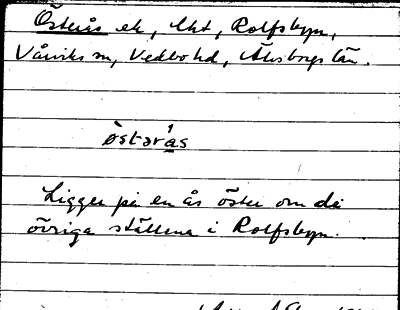 Österås ek, lht, Rolfsbyn,
Vårviks sn, Vedbo hd, Älvsborgs län.
òstərás
Ligger på en ås öster om de
övriga ställena i Rolfsbyn.